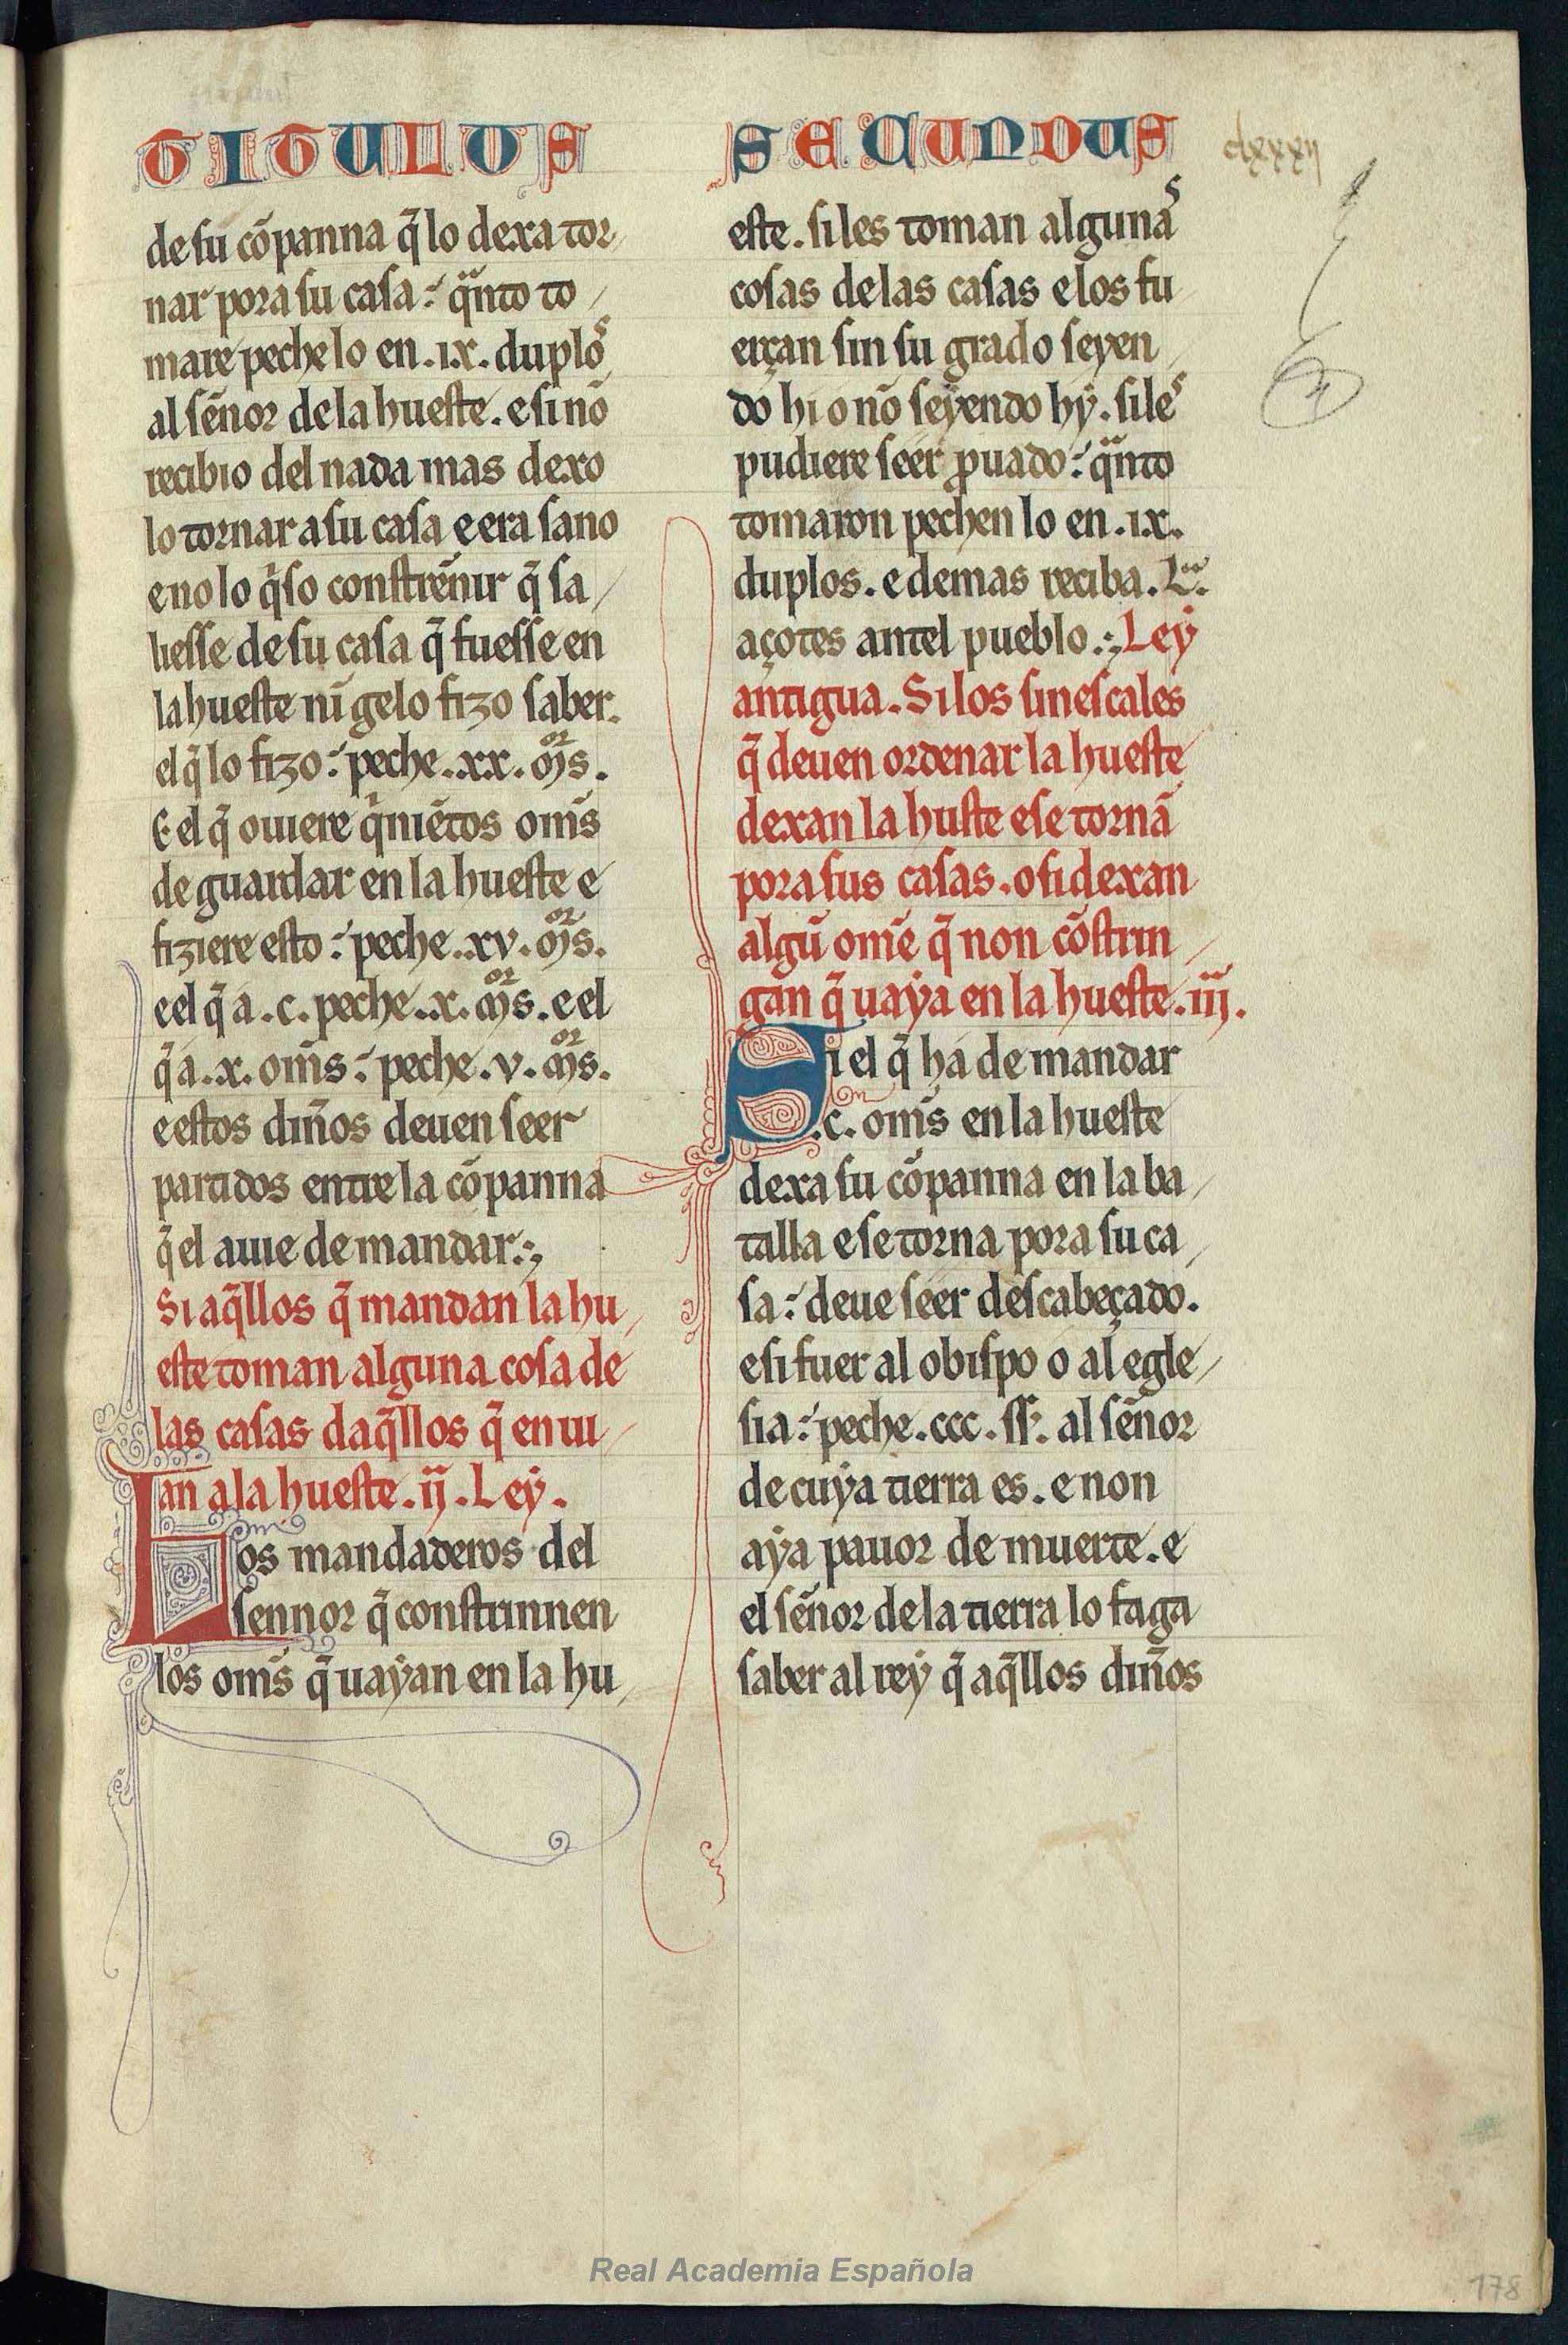 TITULUS SECUNDUS clxxxij
de su cõpanna q̃ lo dexa tor/
nar pora su casa: q̃nto to/
mare peche lo en .ix. duplos
al sẽnor de la hueste. e si nõ
recibio del nada mas dexo
lo tornar a su casa e era sano
e no lo q̃so constrẽnir q̃ sa/
liesse de su casa q̃ fuesse en
la hueste nĩ gelo fizo saber.
el q̃ lo fizo: peche .xx. m̃s.
E el q̃ ouiere q̃niẽtos om̃s
de guardar en la hueste e
fiziere esto: peche .xv. m̃s.
e el q̃ a .c. peche .x. m̃s. e el
q̃ a .x. om̃s: peche .v. m̃s.
e estos din̄os deuen seer
partidos entre la cõpanna
q̃ el auie de mandar.
Si aq̃llos q̃ mandan la hu/
este toman alguna cosa de
las casas daq̃llos q̃ en ui/
an a la hueste. ij. Ley.
Los mandaderos del
sennor q̃ constrinnen
los om̃s q̃ uaẏan en la hu/
este. si les toman algunas
cosas de las casas e los fu
erçan sin su grado seyen/
do hi o nõ seẏendo hẏ. si les
pudiere seer ꝓuado: q̃nto
tomaron pechen lo en .ix.
duplos. e demas reciba .L.
açotes antel pueblo. Leẏ
antigua. Si los sinescales
q̃ deuen ordenar la hueste
dexan la huste e se tornã
pora sus casas. o si dexan
algũ omẽ q̃ non cõstrin/
gan q̃ uaẏa en la hueste. iij.
Si el q̃ ha de mandar
.c. om̃s en la hueste
dexa su cõpanna en la ba/
talla e se torna pora su ca/
sa: deue seer descabeçado.
e si fuer al obispo o al egle/
sia: peche .ccc. ss. al sẽnor
de cuẏa tierra es. e non
aẏa pauor de muerte. e
el sẽnor de la tierra lo faga
saber al reẏ q̃ aq̃llos din̄os
Real Academia Española
178